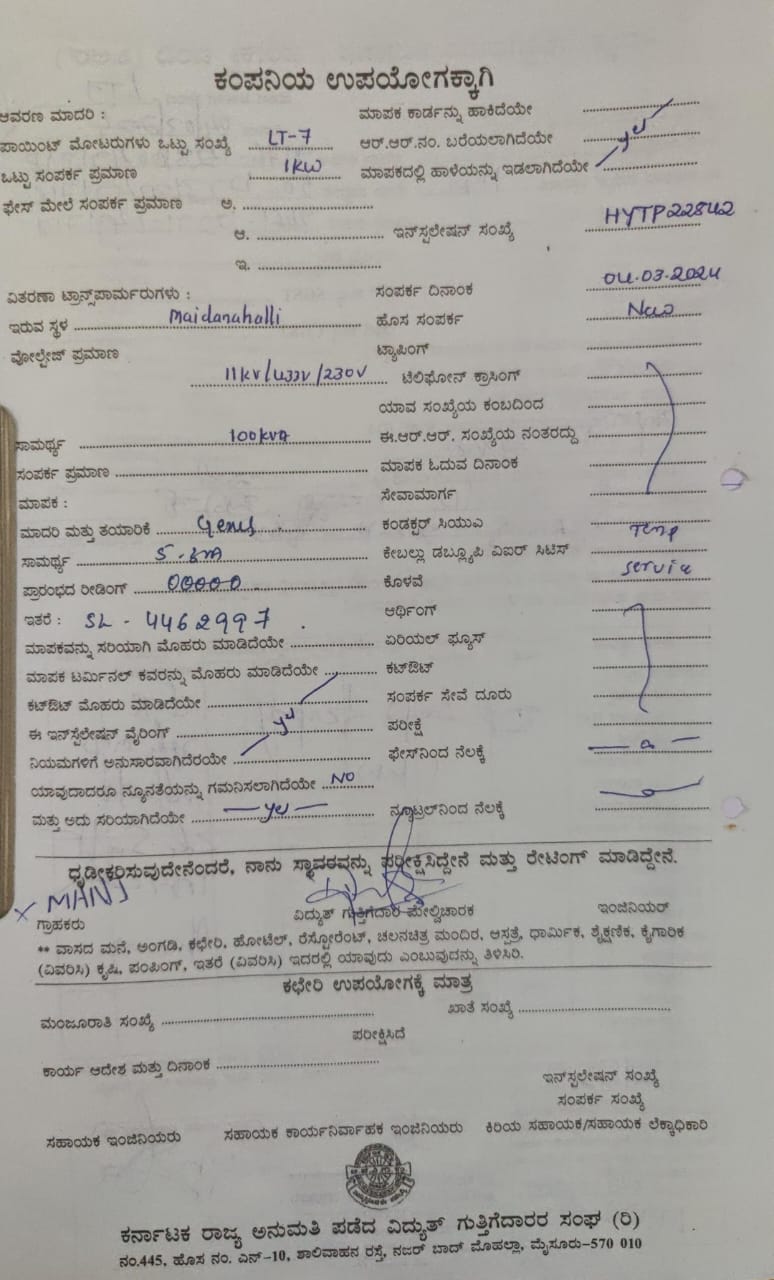 ಕಂಪನಿಯ ಉಪಯೋಗಕ್ಕಾಗಿ
ಆವರಣ ಮಾದರಿ : ಮಾಪಕ ಕಾರ್ಡನ್ನು ಹಾಕಿದೆಯೇ
ಪಾಯಿಂಟ್ ಮೋಟರುಗಳು ಒಟ್ಟು ಸಂಖ್ಯೆ LT-7 ಆರ್.ಆರ್.ನಂ. ಬರೆಯಲಾಗಿದೆಯೇ yes
ಒಟ್ಟು ಸಂಪರ್ಕ ಪ್ರಮಾಣ 1KW ಮಾಪಕದಲ್ಲಿ ಹಾಳೆಯನ್ನು ಇಡಲಾಗಿದೆಯೇ
ಫೇಸ್ ಮೇಲೆ ಸಂಪರ್ಕ ಪ್ರಮಾಣ ಅ.
ಆ. ಇನ್‌ಸ್ಟಲೇಷನ್ ಸಂಖ್ಯೆ HYTP22842
ಇ.
ವಿತರಣಾ ಟ್ರಾನ್ಸ್‌ಪಾರ್ಮರುಗಳು : ಸಂಪರ್ಕ ದಿನಾಂಕ 04.03.2024
ಇರುವ ಸ್ಥಳ Maidanahalli ಹೊಸ ಸಂಪರ್ಕ New
ವೋಲ್ಟೇಜ್ ಪ್ರಮಾಣ ಟ್ಯಾಪಿಂಗ್
11KV/433V/230V ಟೆಲಿಫೋನ್ ಕ್ರಾಸಿಂಗ್
ಯಾವ ಸಂಖ್ಯೆಯ ಕಂಬದಿಂದ
ಸಾಮರ್ಥ್ಯ 100kVA ಈ.ಆರ್.ಆರ್. ಸಂಖ್ಯೆಯ ನಂತರದ್ದು
ಸಂಪರ್ಕ ಪ್ರಮಾಣ ಮಾಪಕ ಓದುವ ದಿನಾಂಕ
ಮಾಪಕ : ಸೇವಾಮಾರ್ಗ
ಮಾದರಿ ಮತ್ತು ತಯಾರಿಕೆ Genus ಕಂಡಕ್ಟರ್ ಸಿಯುವಿ Temp
ಸಾಮರ್ಥ್ಯ ಕೇಬಲ್ಲು ಡಬ್ಲ್ಯೂಪಿ ಎಐರ್ ಸಿಟಿಸ್
ಪ್ರಾರಂಭದ ರೀಡಿಂಗ್ 00000 ಕೊಳವೆ service
ಇತರೆ : SL - 4462997 . ಆರ್ಥಿಂಗ್
ಮಾಪಕವನ್ನು ಸರಿಯಾಗಿ ಮೊಹರು ಮಾಡಿದೆಯೇ ಏರಿಯಲ್ ಫ್ಯೂಸ್
ಮಾಪಕ ಟರ್ಮಿನಲ್ ಕವರನ್ನು ಮೊಹರು ಮಾಡಿದೆಯೇ ಕಟ್‌ಔಟ್
ಕಟ್‌ಔಟ್ ಮೊಹರು ಮಾಡಿದೆಯೇ ಸಂಪರ್ಕ ಸೇವೆ ದೂರು
ಈ ಇನ್‌ಸ್ಟಲೇಷನ್ ವೈರಿಂಗ್ yes ಪರೀಕ್ಷೆ
ನಿಯಮಗಳಿಗೆ ಅನುಸಾರವಾಗಿದೆರಯೇ ಫೇಸ್‌ನಿಂದ ನೆಲಕ್ಕೆ
ಯಾವುದಾದರೂ ನ್ಯೂನತೆಯನ್ನು ಗಮನಿಸಲಾಗಿದೆಯೇ NO
ಮತ್ತು ಅದು ಸರಿಯಾಗಿದೆಯೇ yes ನ್ಯೂಟ್ರಲ್‌ನಿಂದ ನೆಲಕ್ಕೆ
ಧೃಡೀಕರಿಸುವುದೇನೆಂದರೆ, ನಾನು ಸ್ಥಾವರವನ್ನು ಪರೀಕ್ಷಿಸಿದ್ದೇನೆ ಮತ್ತು ರೇಟಿಂಗ್ ಮಾಡಿದ್ದೇನೆ.
ಗ್ರಾಹಕರು ವಿದ್ಯುತ್ ಗುತ್ತಿಗೆದಾರ ಮೇಲ್ವಿಚಾರಕ ಇಂಜಿನಿಯರ್
** ವಾಸದ ಮನೆ, ಅಂಗಡಿ, ಕಛೇರಿ, ಹೋಟೆಲ್, ರೆಸ್ಟೋರೆಂಟ್, ಚಲನಚಿತ್ರ ಮಂದಿರ, ಆಸ್ಪತ್ರೆ, ಧಾರ್ಮಿಕ, ಶೈಕ್ಷಣಿಕ, ಕೈಗಾರಿಕ
(ವಿವರಿಸಿ) ಕೃಷಿ, ಪಂಪಿಂಗ್, ಇತರೆ (ವಿವರಿಸಿ) ಇದರಲ್ಲಿ ಯಾವುದು ಎಂಬುವುದನ್ನು ತಿಳಿಸಿರಿ.
ಕಛೇರಿ ಉಪಯೋಗಕ್ಕೆ ಮಾತ್ರ
ಮಂಜೂರಾತಿ ಸಂಖ್ಯೆ ಖಾತೆ ಸಂಖ್ಯೆ
ಪರೀಕ್ಷಿಸಿದೆ
ಕಾರ್ಯ ಆದೇಶ ಮತ್ತು ದಿನಾಂಕ
ಇನ್‌ಸ್ಟಲೇಷನ್ ಸಂಖ್ಯೆ
ಸಂಪರ್ಕ ಸಂಖ್ಯೆ
ಸಹಾಯಕ ಇಂಜಿನಿಯರು ಸಹಾಯಕ ಕಾರ್ಯನಿರ್ವಾಹಕ ಇಂಜಿನಿಯರು ಕಿರಿಯ ಸಹಾಯಕ/ಸಹಾಯಕ ಲೆಕ್ಕಾಧಿಕಾರಿ
ಕರ್ನಾಟಕ ರಾಜ್ಯ ಅನುಮತಿ ಪಡೆದ ವಿದ್ಯುತ್ ಗುತ್ತಿಗೆದಾರರ ಸಂಘ (ರಿ)
ನಂ.445, ಹೊಸ ನಂ. ಎನ್-10, ಶಾಲಿವಾಹನ ರಸ್ತೆ, ನಜರ್ ಬಾದ್ ಮೊಹಲ್ಲಾ, ಮೈಸೂರು-570 010